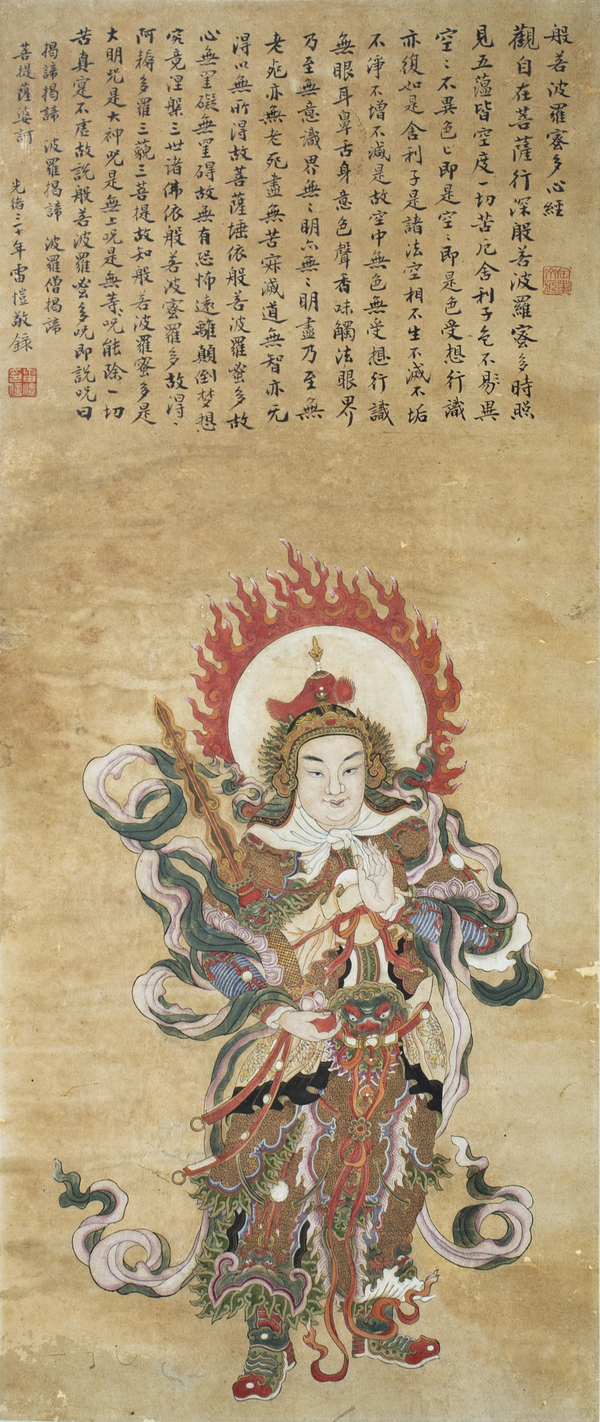 般若波羅蜜多心經
觀自在菩薩行深般若波羅蜜多時照
見五蘊皆空度一切苦厄舍利子色不易異
空〻不異色〻即是空〻即是色受想行識
亦復如是舍利子是諸法空相不生不滅不垢
不淨不增不減是故空中無色無受想行識
無眼耳鼻舌身意色聲香味觸法眼界
乃至無意識界無〻明亦無〻明盡乃至無
老死亦無老死盡無苦寂滅道無智亦无
得以無所得故菩薩埵依般若波羅蜜多故
心無罣礙無罣碍故無有恐怖遠離顛倒梦想
究竟涅槃三世諸佛依般若波蜜羅多故得〻
阿耨多羅三藐三菩提故知般若波羅蜜多是
大明咒是大神咒是無上咒是無等咒能除一切
苦真寔不虛故說般若波羅蜜多咒即說咒曰
揭諦揭諦 波羅揭諦 波羅僧揭諦
菩提薩婆訶 光緒三十年雷愷敬錄